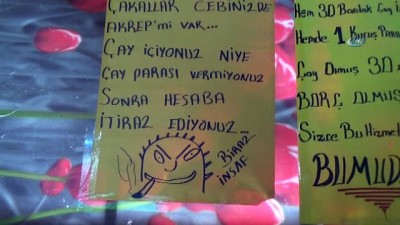 ÇAKALLAR CEBİNİZDE
AKREP'mi VAR...
ÇAY İÇİYONUZ NİYE
ÇAY PARASI VERMİYONUZ
SONRA HESABA
İTİRAZ EDİYONUZ...
BİRAZ
İNSAF
Hem 30 Bardak Çay İ
Hemde 1 Kuruş Para
Çay Olmuş 30
BORÇ OLMUŞ
Sizce Bu Hizmet
BUMUD